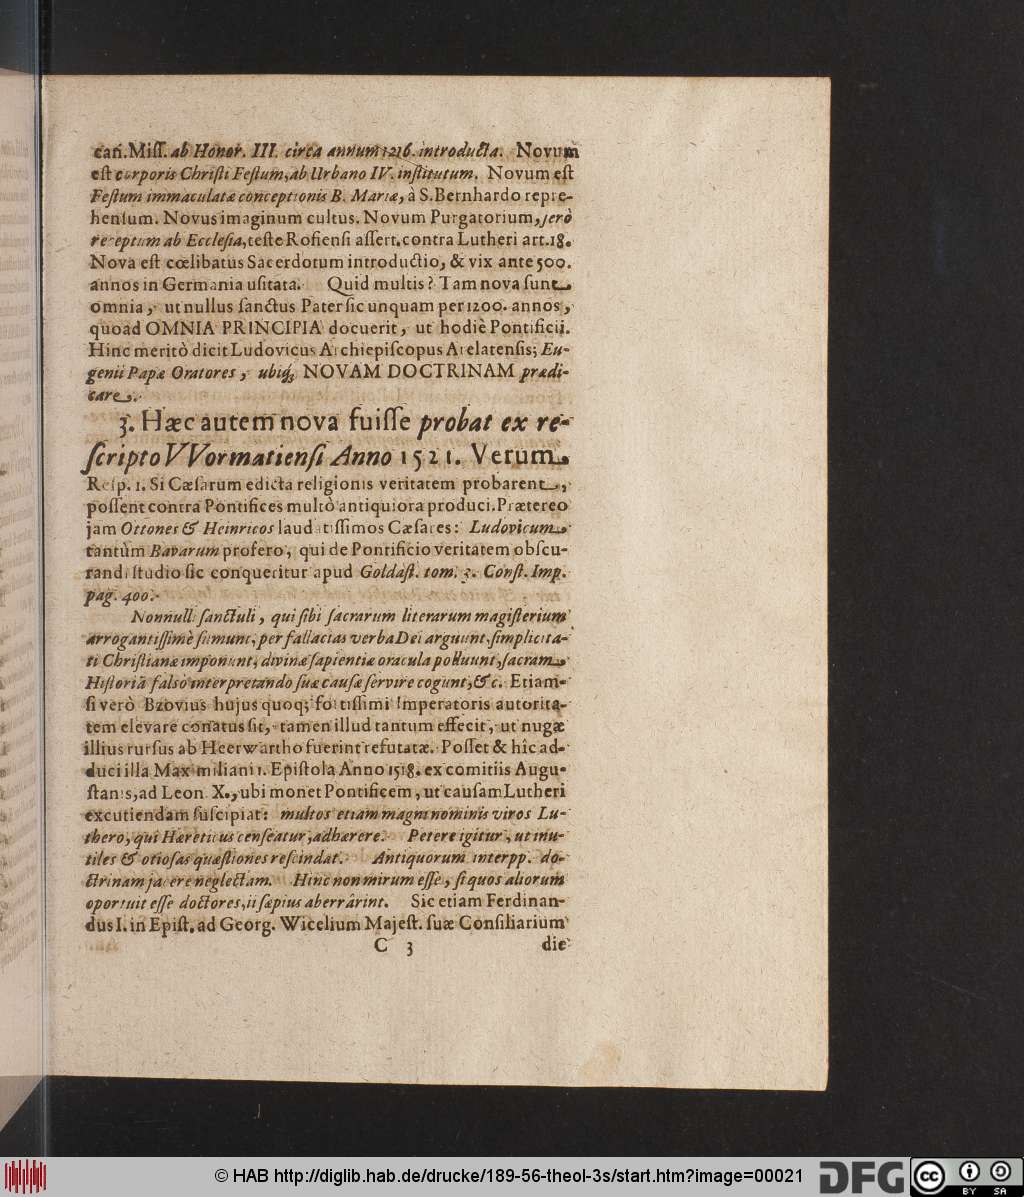 can. Miſſ. ab Honor. III. circa annum 1216. introducta. Novum
eſt corporis Chriſti Feſtum, ab Urbano IV. inſtitutum. Novum eſt
Feſtum immaculatæ conceptionis B. Mariæ, à S. Bernhardo repre-
henſum. Novus imaginum cultus. Novum Purgatorium, ſerò
receptum ab Eccleſia, teſte Roffenſi aſſert. contra Lutheri art. 18.
Nova eſt cœlibatus Sacerdotum introductio, & vix ante 500.
annos in Germania uſitata. Quid multis? Tam nova ſunt
omnia, ut nullus ſanctus Pater ſic unquam per 1200. annos,
quoad OMNIA PRINCIPIA docuerit, ut hodiè Pontificij.
Hinc meritò dicit Ludovicus Archiepiſcopus Arelatenſis; Eu-
genii Papæ Oratores, ubiq; NOVAM DOCTRINAM prædi-
care.
3. Hæc autem nova fuiſſe probat ex re-
ſcripto VVormatienſi Anno 1521. Verum
Reſp. 1. Si Cæſarum edicta religionis veritatem probarent,
poſſent contra Pontifices multò antiquiora produci. Prætereo
jam Ottones & Heinricos laudatiſſimos Cæſares: Ludovicum
tantùm Bavarum profero, qui de Pontificio veritatem obſcu-
randi ſtudio ſic conqueritur apud Goldaſt. tom. 3. Conſt. Imp.
pag. 400.
Nonnulli ſanctuli, qui ſibi ſacrarum literarum magiſterium
arrogantiſſimè ſumunt, per fallacias verba Dei arguunt, ſimplicita-
ti Chriſtianæ imponunt, divinæ ſapientiæ oracula polluunt, ſacram
Hiſtoriã falsò interpretando ſuæ cauſæ ſervire cogunt, &c. Etiam-
ſi verò Bzovius hujus quoq; fortiſſimi Imperatoris autorita-
tem elevare conatus ſit, tamen illud tantum effecit, ut nugæ
illius rurſus ab Heerwartho fuerint refutatæ. Poſſet & hîc ad-
duci illa Maximiliani 1. Epiſtola Anno 1518. ex comitiis Augu-
ſtanis, ad Leon X., ubi monet Pontificem, ut cauſam Lutheri
excutiendam ſuſcipiat: multos etiam magni nominis viros Lu-
thero, qui Hæreticus cenſeatur, adhærere. Petere igitur, ut inu-
tiles & otioſas quæſtiones reſcindat. Antiquorum interpp. do-
ctrinam jacere neglectam. Hinc non mirum eſſe, ſi quos aliorum
oportuit eſſe doctores, ii ſæpius aberrârint. Sic etiam Ferdinan-
dus I. in Epiſt. ad Georg. Wicelium Majeſt. ſuæ Conſiliarium
C 3 die
© HAB http://diglib.hab.de/drucke/189-56-theol-3s/start.htm?image=00021
DFG cc BY SA